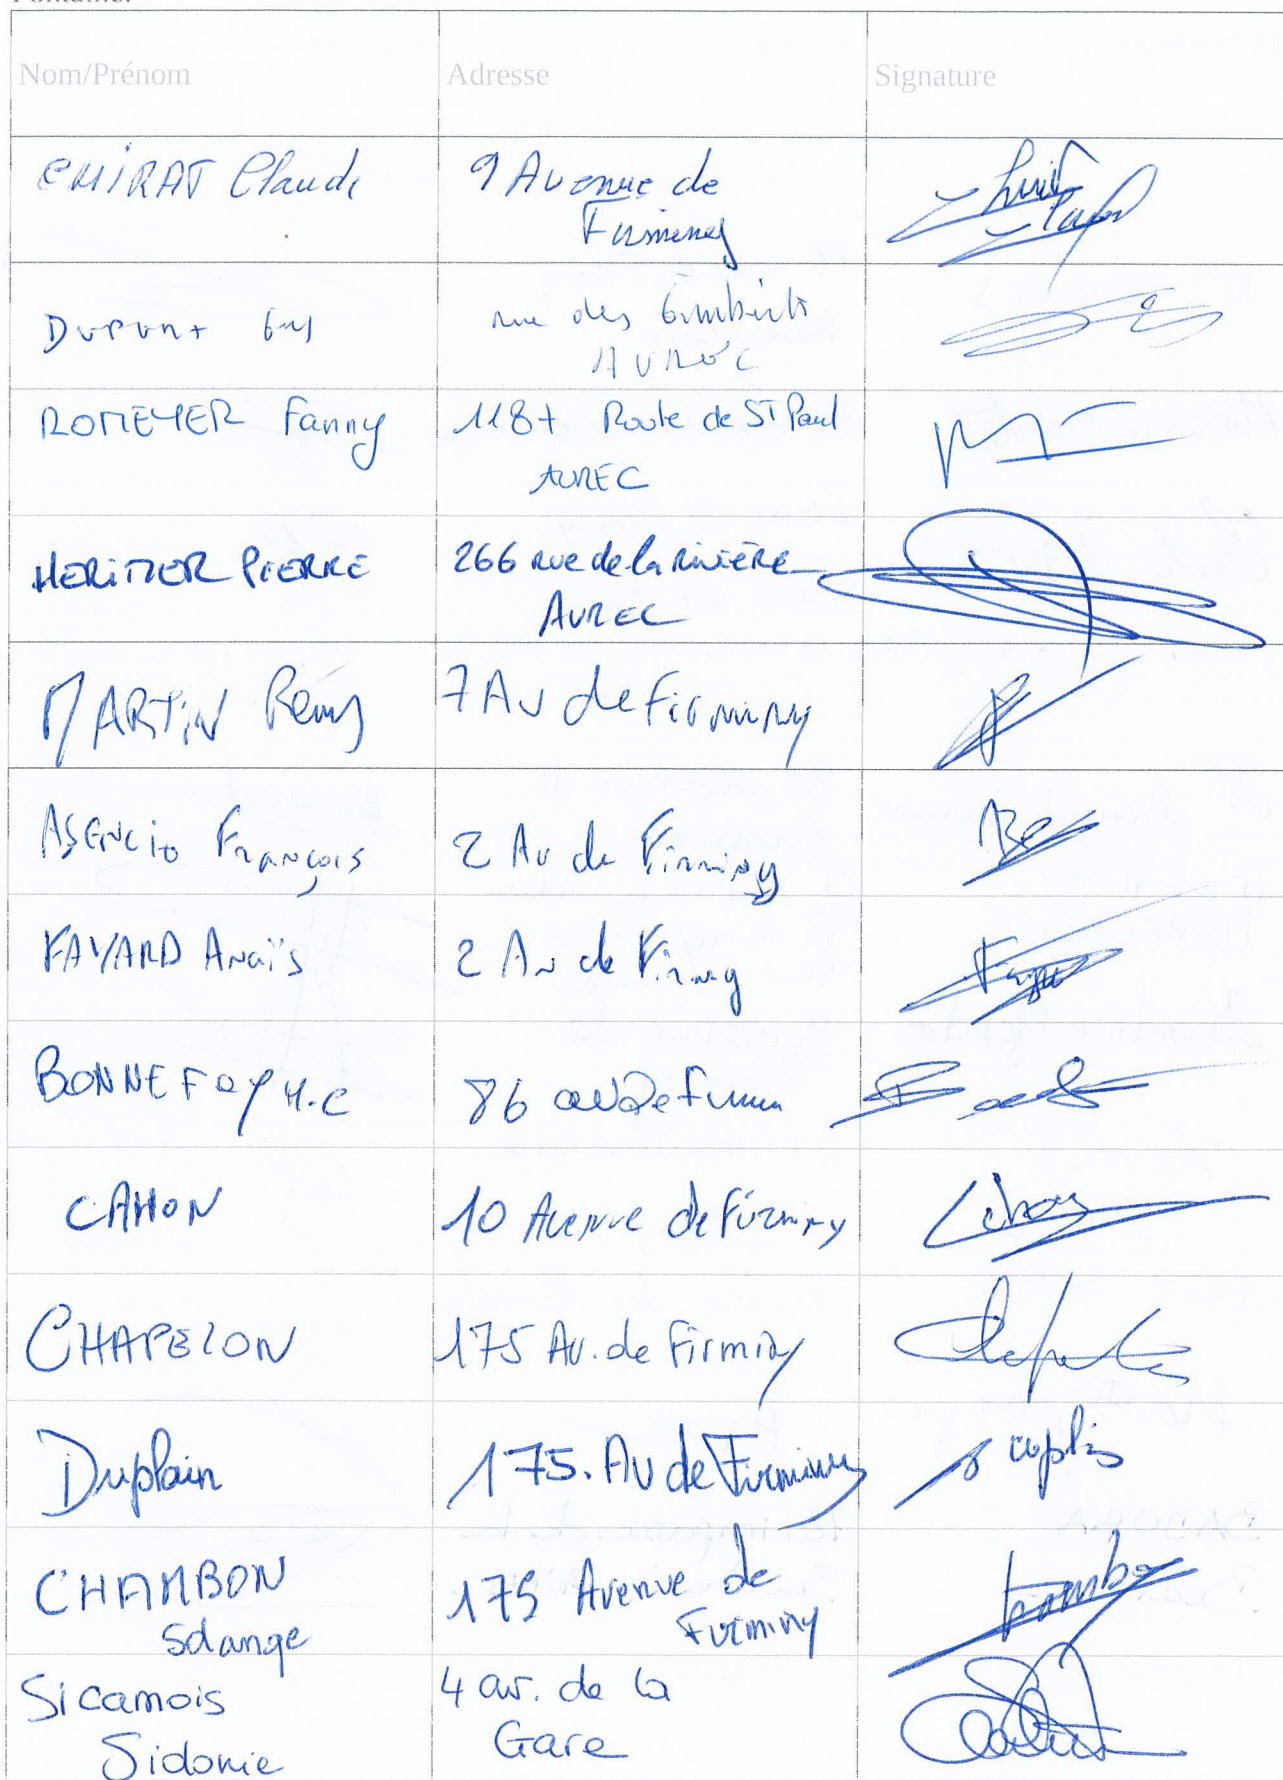 Nom/Prénom Adresse Signature
EMIRAT Claude 9 Avenue de
Firminy
DUPONT Guy rue des
AUREC
ROMEYER Fanny 1187 Route de ST Paul
AUREC
HERITIER PIERRE 266 rue de la RiviÈRE
AUREC
MARTIN Rémy 7 Av de Firminy
ASENCIO François 2 Av de Firminy
FAYARD Anaïs 2 Av de Firminy
BONNEFOY M.C 86 av De
CAHON 10 Avenue de Firminy
CHAPELON 175 Av. de Firminy
Duplain 175. Av de Firminy
CHAMBON 175 Avenue de
Solange Firminy
Sicamois 4 av. de la
Sidonie Gare